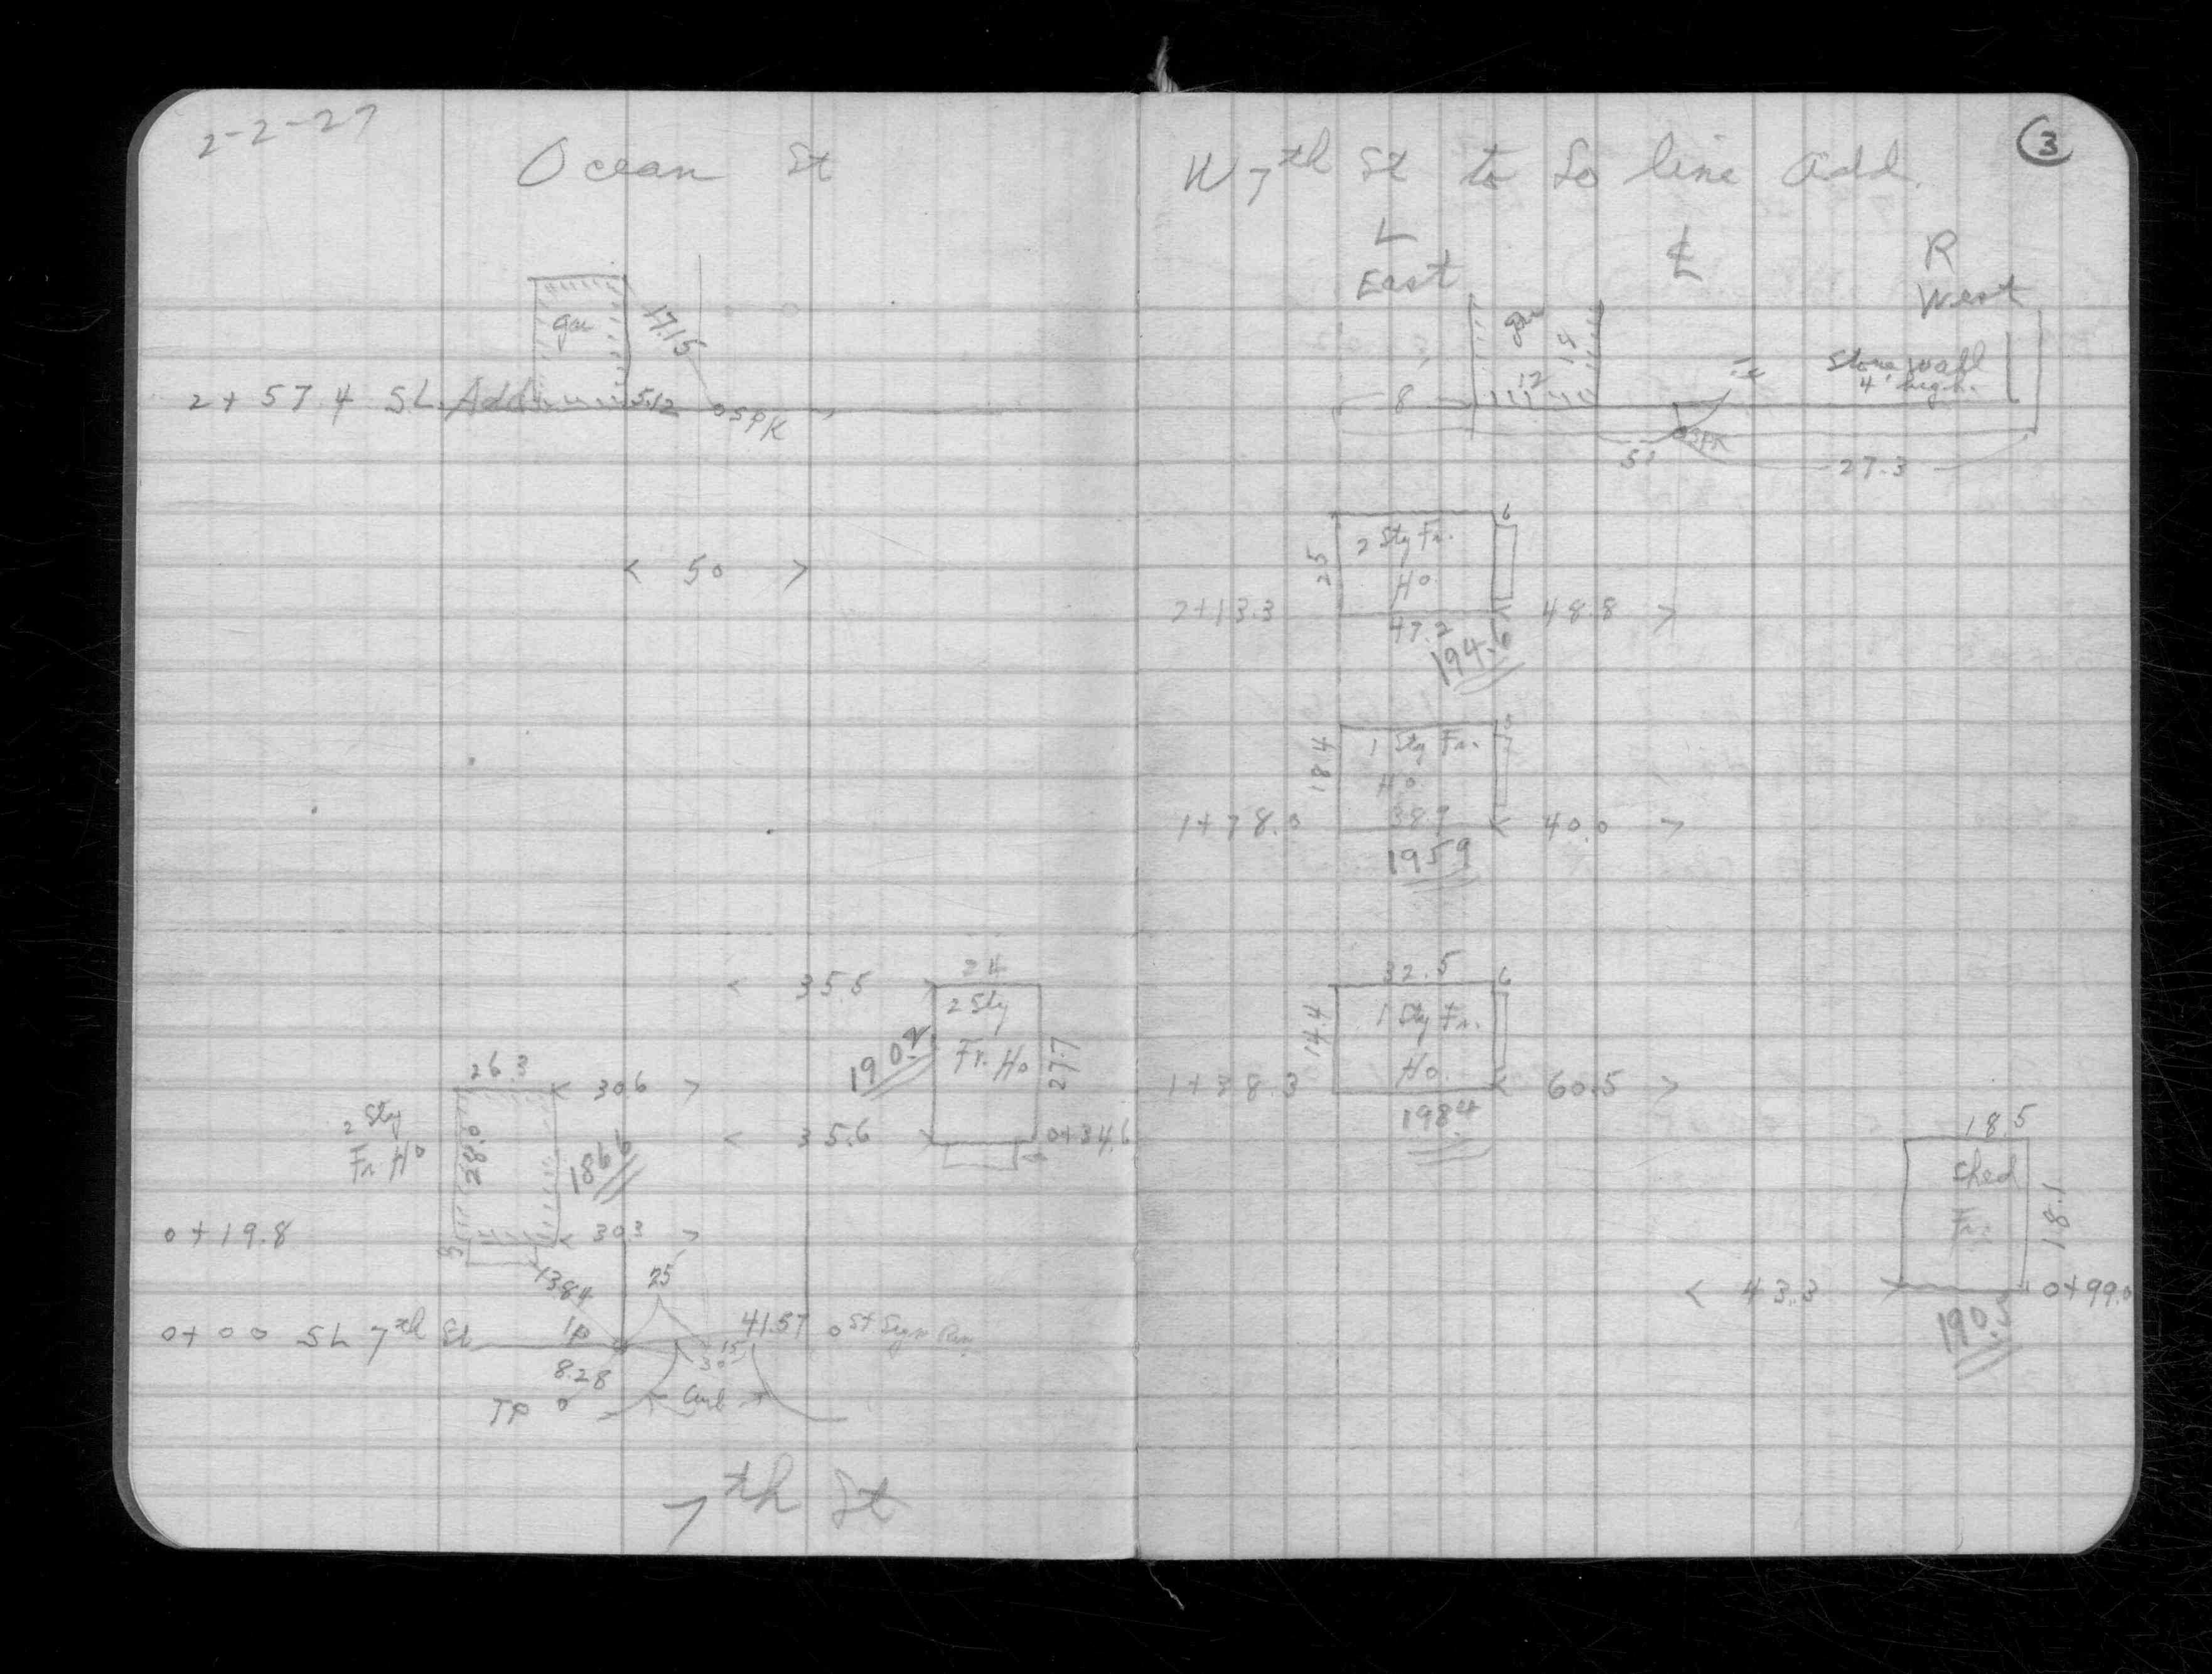 2-2-27
Ocean St
gar
17.15
2+57.4 SL. Add 5.12 SPK
< 50 >
24
< 35.5 >
2 Sty
Fr. Ho
27.7
190.2
26.3
< 30.6 >
2 Sty
Fr. Ho
28.0
186.6
< 35.6 >
0+34.6
0+19.8
< 30.3 >
13.84
25
0+00 SL 7th St IP 41.57 St Sign
15
30
8.28
TP
Curb
7th St
3
W 7th St to So line Add.
L
East
℄
R
West
gar
18
12
8
Stone wall
4' high
SPK
51
27.3
6
2 Sty Fr.
Ho
25
2+13.3 47.2 < 48.8 >
194.6
1 Sty Fr.
Ho
18.4
1+78.0 38.9 < 40.0 >
195.9
32.5
6
1 Sty Fr.
Ho.
14.4
1+38.3 < 60.5 >
198.4
18.5
Shed
Fr.
18.1
< 43.3 > 0+99.0
190.5